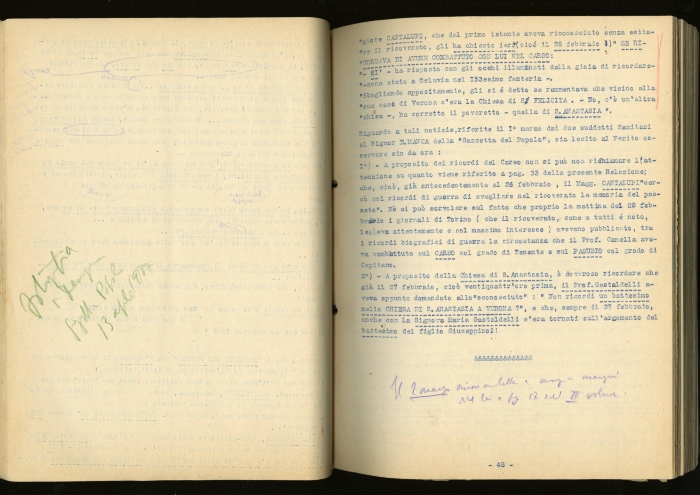 "giore CANTALUPI, che dal primo istante aveva riconosciuto senza esita-
"re il ricoverato, gli ha chiesto ieri(cioè il 28 febbraio )" SE RI-
"CORDAVA DI AVERE COMBATTUTO CON LUI NEL CARSO:
"- ha risposto con gli occhi illuminati dalla gioia di ricordare-
"-sono stato a Oslavia nel 153esimo fanteria -.
"Sbagliando appositamente, gli si è detto se rammentava che vicino alla
"sua casa di Verona c'era la Chiesa di S. FELICITA . - No, c'è un'altra
"chiesa -, ha corretto il poveretto - quella di S.ANASTASIA ".
Riguardo a tali notizie,riferite il I° marzo dai due suddetti Sanitari
al Signor E.MANCA della "Gazzetta del Popolo", sia lecito al Perito os-
servare sin da ora :
1°) - A proposito dei ricordi del Carso non si può non richiamare l'at-
tenzione su quanto viene riferito a pag. 33 della presente Relazione;
che, cioè, già antecedentemente al 26 febbraio , il Magg. CANTALUPI"cer-
cò coi ricordi di guerra di svegliare nel ricoverato la memoria del pas-
sato". Nè si può sorvolare sul fatto che proprio la mattina del 28 feb-
braio i giornali di Torino ( che il ricoverato, come a tutti è noto,
leggeva attentamente e col massimo interesse ) avevano pubblicato, tra
i ricordi biografici di guerra la circostanza che il Prof. Canella ave-
va combattuto sul CARSO col grado di Tenente e sul PASUBIO col grado di
Capitano.
2°) - A proposito della Chiesa di S.Anastasia, è doveroso ricordare che
già il 27 febbraio, cioè ventiquattr'ore prima, il Prof.Gastaldelli a-
veva appunto domandato allo"sconosciuto" : " Non ricordi un battesimo
nella CHIESA DI S.ANASTASIA A VERONA ?", e che, sempre il 27 febbraio,
anche con la Signora Maria Gastaldelli s'era tornati sull'argomento del
battesimo del figlio Giuseppino!!
Il 2 marzo
- 48 -